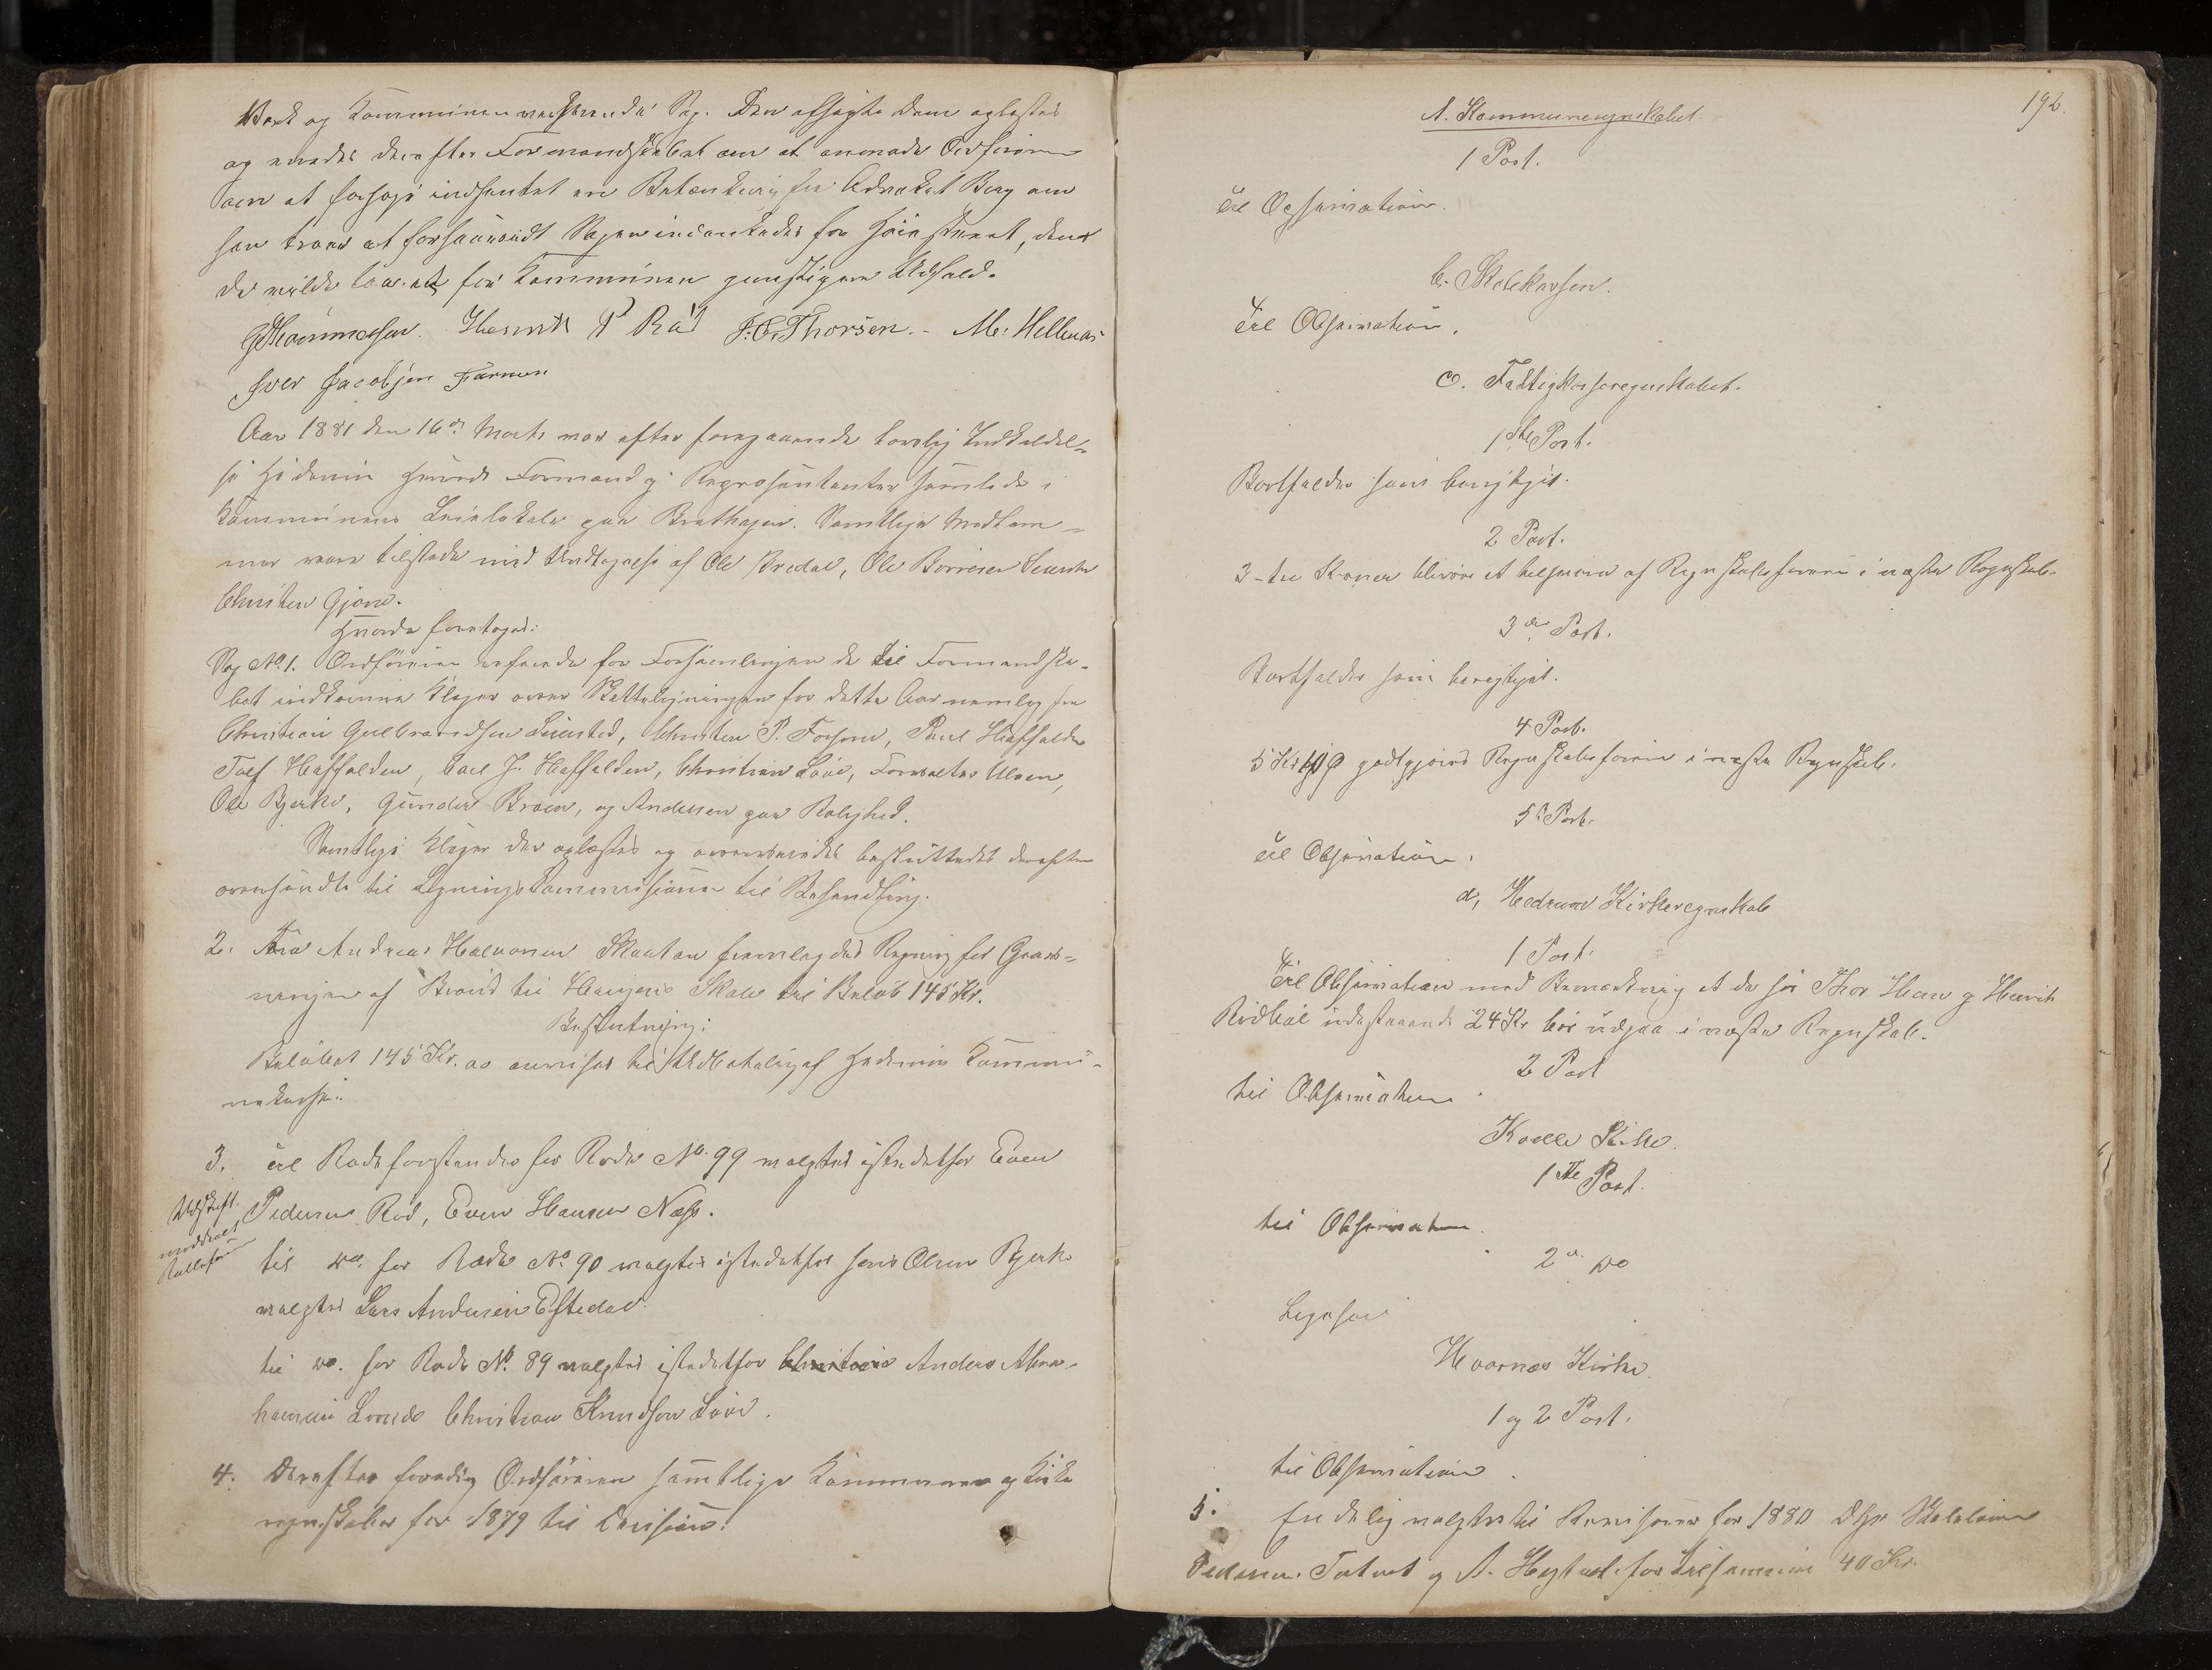 og Kommunen Sag. Den afsagte Dom oplæstes
og derefter Formandskabet om at anmode Ordføreren
om at indhentet en Betænkning fra Advokat Berg om
han troer at Sagen indankedes for Høiesteret, den
da vilde for Kommunen gunstigere Udfald.
Henrik P Rød J.C. Thorsen. - M. Hellenæs
Iver Jacobsen Farmen
Aar 1881 den 16de Marts var efter foregaaende lovlig Indkaldel-
se Hedrum Herreds Formænd og Repræsentanter samlede i
Kommunens Leielokale paa Brathagen. Samtlige Medlem-
mer vare tilstede med Undtagelse af Ole Bredal, Ole Borresen
Christen Gjone.
Hvorda foretoges:
Sag No. 1. Ordføreren refererede for Forsamlingen de til Formandska-
bet indkomne Klager over Skatteligningen for dette Aar nemlig fra
Christian Gulbrandsen, Christen P., Paul Haffalden
Tolf Haffalden, Carl J. Haffalden, Christian Løve, Forvalter Ulven,
Ole Bjerke, Gunder Broen, og Andersen paa Rolighed.
Samtlige Klager der oplæstes og besluttedes derefter
oversendte til Ligningskommissionen til Behandling.
2. Fra Andreas Halvorsen Skaatan fremlagdes Regning for
af Brønd til Haugens Skole til Beløb 145 Kr.
Beslutning:
Beløbet 145 Kr. anvises til Udbetaling af Hedrum Kommu-
nekasse.
3. Til Rodeforstander for Rode No. 99 valgtes istedetfor Even
Udskrift
meddelt
Pedersen Rød, Even Hansen Næss.
til do. for Rode No. 90 valgtes istedetfor Hans Olsen Bjerke
valgtes Lars Andersen Eftedal.
til do. for Rode No. 89 valgtes istedetfor Anders Abra-
hamsen Christian Knudsen Løve.
4. Derefter foredrog Ordføreren samtlige Kommune og Kirke
regnskaber for 1879 til Decision:
192.
A. Kommuneregnskabet.
1 Post.
Til Observation.
b. Skolekassen.
Til Observation.
c. Fattigkasseregnskabet.
1ste Post.
Bortfalder som berigtiget.
2 Post.
3 - tre Kroner bliver at af Regnskabsføreren i næste Regnskab.
3die Post.
Bortfalder som berigtiget.
4 Post.
5 Kr godtgjøres Regnskabsføreren i næste Regnskab.
5te Post.
Til Observation.
d, Hedrum Kirkeregnskab
1 Post.
Til Observation med Bemærkning at de hos Thor Hem og Henrik
Rødbøl udestaaende 24 Kr bør udgaa i næste Regnskab.
2 Post
til Observation.
Kvelle Kirke.
1ste Post.
til Observation.
2den Do
Ligesaa
Hvarnæs Kirke.
1 og 2 Post.
til Observation.
5. Endelig valgtes til Revisorer for 1880 Dhr Skolelærer
Pedersen og A. for tilsammen 40 Kr.